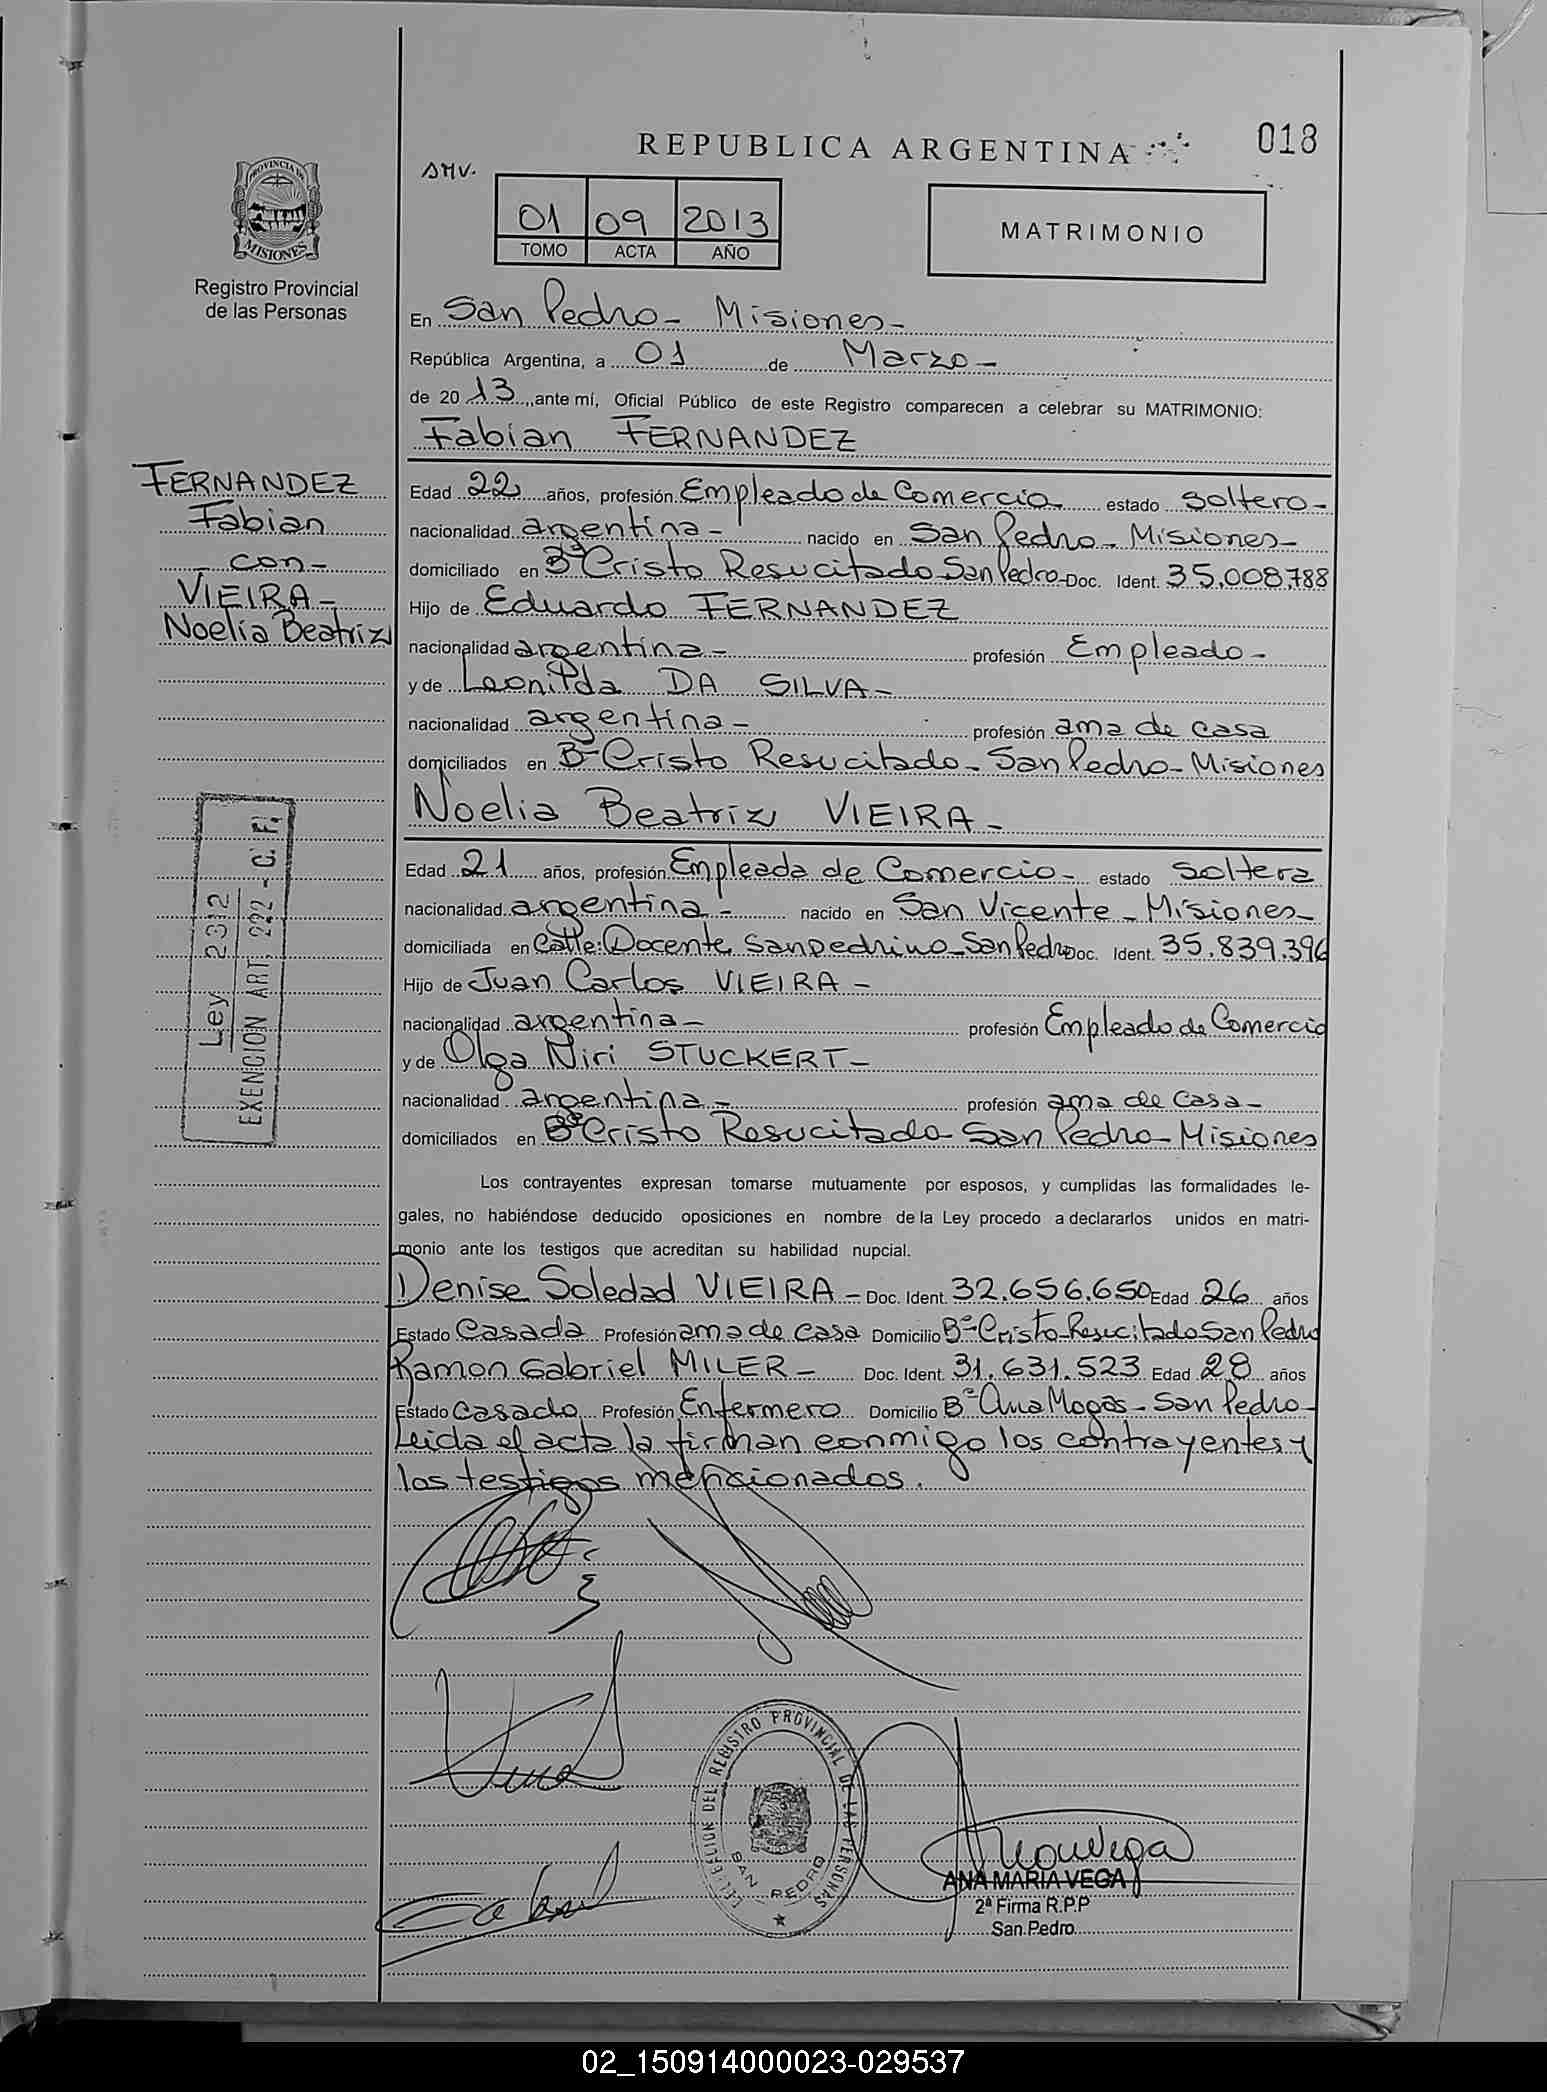 REPUBLICA ARGENTINA
018
PROVINCIA DE
MISIONES
Registro Provincial
de las Personas
SMV.
01 09 2013
TOMO ACTA AÑO
MATRIMONIO
En San Pedro - Misiones -
República Argentina, a 01 de Marzo -
de 2013, ante mí, Oficial Público de este Registro comparecen a celebrar su MATRIMONIO:
Fabian FERNANDEZ
FERNANDEZ
Fabian
- con -
VIEIRA -
Noelia Beatriz
Edad 22 años, profesión Empleado de Comercio estado soltero -
nacionalidad argentina - nacido en San Pedro - Misiones -
domiciliado en Bº Cristo Resucitado San Pedro - Doc. Ident. 35.008.788
Hijo de Eduardo FERNANDEZ
nacionalidad argentina - profesión Empleado -
y de Leonilda DA SILVA -
nacionalidad argentina - profesión ama de casa
domiciliados en Bº Cristo Resucitado - San Pedro - Misiones
Noelia Beatriz VIEIRA -
Edad 21 años, profesión Empleada de Comercio - estado soltera
nacionalidad argentina - nacido en San Vicente - Misiones -
domiciliada en Calle: Docente Sanpedrino - San Pedro Doc. Ident. 35.839.396
Hijo de Juan Carlos VIEIRA -
nacionalidad argentina - profesión Empleado de Comercio
y de Olga Niri STUCKERT -
nacionalidad argentina - profesión ama de casa -
domiciliados en Bº Cristo Resucitado San Pedro - Misiones
Ley 2312
EXENCION ART. 222 - C. F.
Los contrayentes expresan tomarse mutuamente por esposos, y cumplidas las formalidades le-
gales, no habiéndose deducido oposiciones en nombre de la Ley procedo a declararlos unidos en matri-
monio ante los testigos que acreditan su habilidad nupcial.
Denise Soledad VIEIRA - Doc. Ident. 32.656.650 Edad 26 años
Estado Casada Profesión ama de casa Domicilio Bº Cristo Resucitado San Pedro
Ramon Gabriel MILER - Doc. Ident. 31.631.523 Edad 28 años
Estado Casado Profesión Enfermero Domicilio Bº Ana Mogas - San Pedro -
Leida el acta la firman conmigo los contrayentes y
los testigos mencionados.
DELEGACION DEL REGISTRO PROVINCIAL DE LAS PERSONAS
SAN PEDRO
ANA MARIA VEGA
2ª Firma R.P.P
San Pedro
02_150914000023-029537